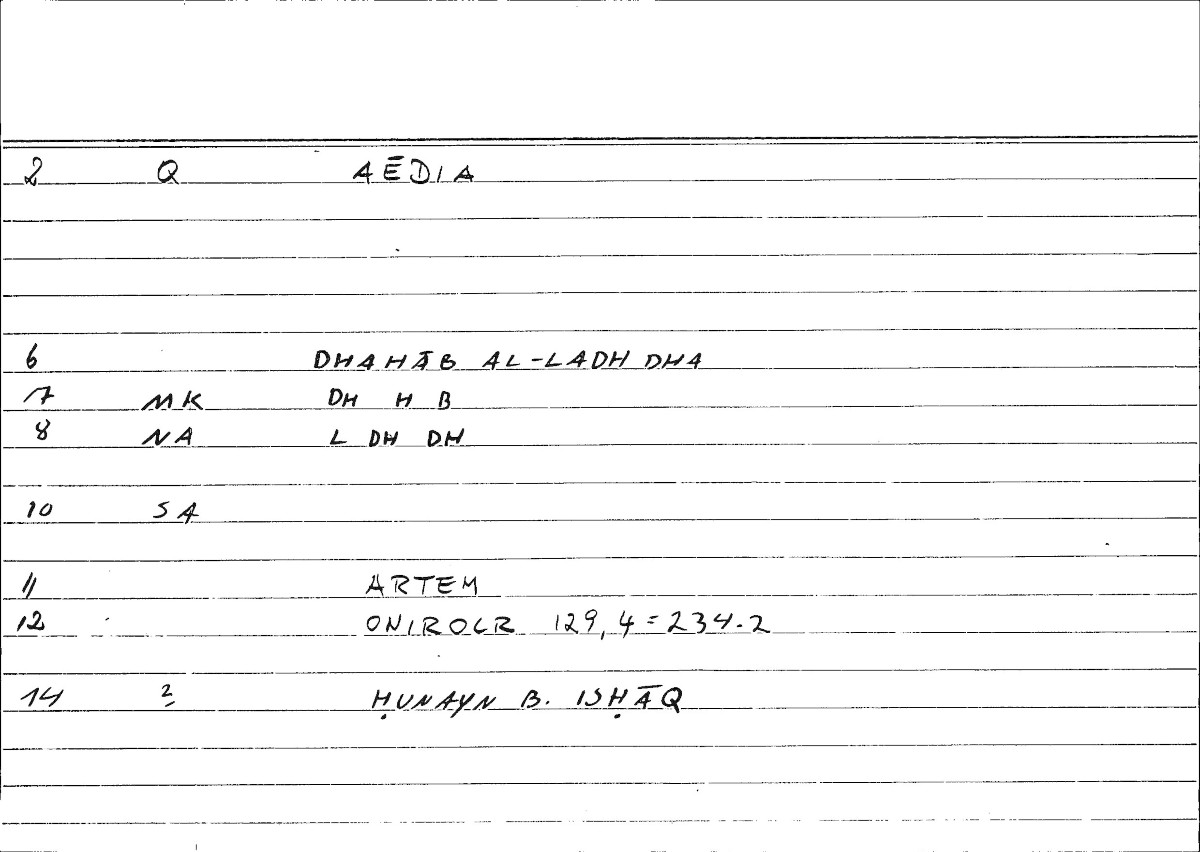 2 Q AĒDIA
6 DHAHĀB AL-LADH DHA
7 MK DH H B
8 NA L DH DH
10 SA
11 ARTEM
12 ONIROCR 129,4=234.2
14 2 ḤUNAYN B. ISḤĀQ